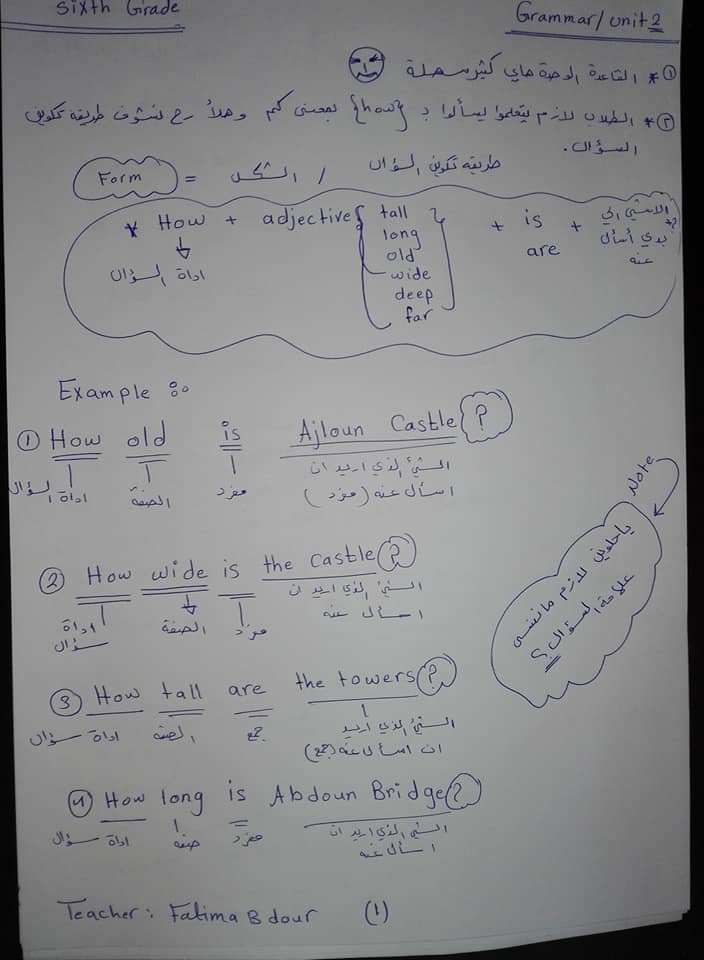 Sixth Grade
Grammar/unit 2
① * القاعدة الوحدة هاي كثير سهلة
② * الطلاب لازم يتعلموا يسألوا بـ {how} بمعنى كم وهلأ رح نشوف طريقة تكوين
السؤال.
Form = الشكل / طريقة تكوين السؤال
* How + adjective { tall + is + الاشي الي
long are بدي أسأل
old عنه
wide
deep
far
اداة السؤال
Example :
① How old is Ajloun Castle?
اداة السؤال الصفة مفرد الشيء الذي اريد ان
اسأل عنه (مفرد)
Note
يا حلوين لازم ما ننسى
علامة السؤال؟
② How wide is the castle?
اداة سؤال الصفة مفرد الشيء الذي اريد ان
اسأل عنه
③ How tall are the towers?
اداة سؤال الصفة جمع الشيء الذي اريد
ان اسأل عنه (جمع)
④ How long is Abdoun Bridge?
اداة سؤال صفة مفرد الشيء الذي اريد ان
اسأل عنه
Teacher: Fatima Bdour (1)